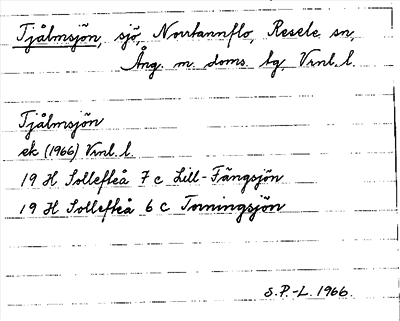 Tjålmsjön, sjö, Norrtannflo, Resele sn,
Ång. m. doms. tg, Vrnl. l.
Tjålmsjön
ek (1966) Vrnl. l.
19 H Sollefteå 7 c Lill-Fängsjön
19 H Sollefteå 6 c Torringsjön
S.P.-L. 1966.